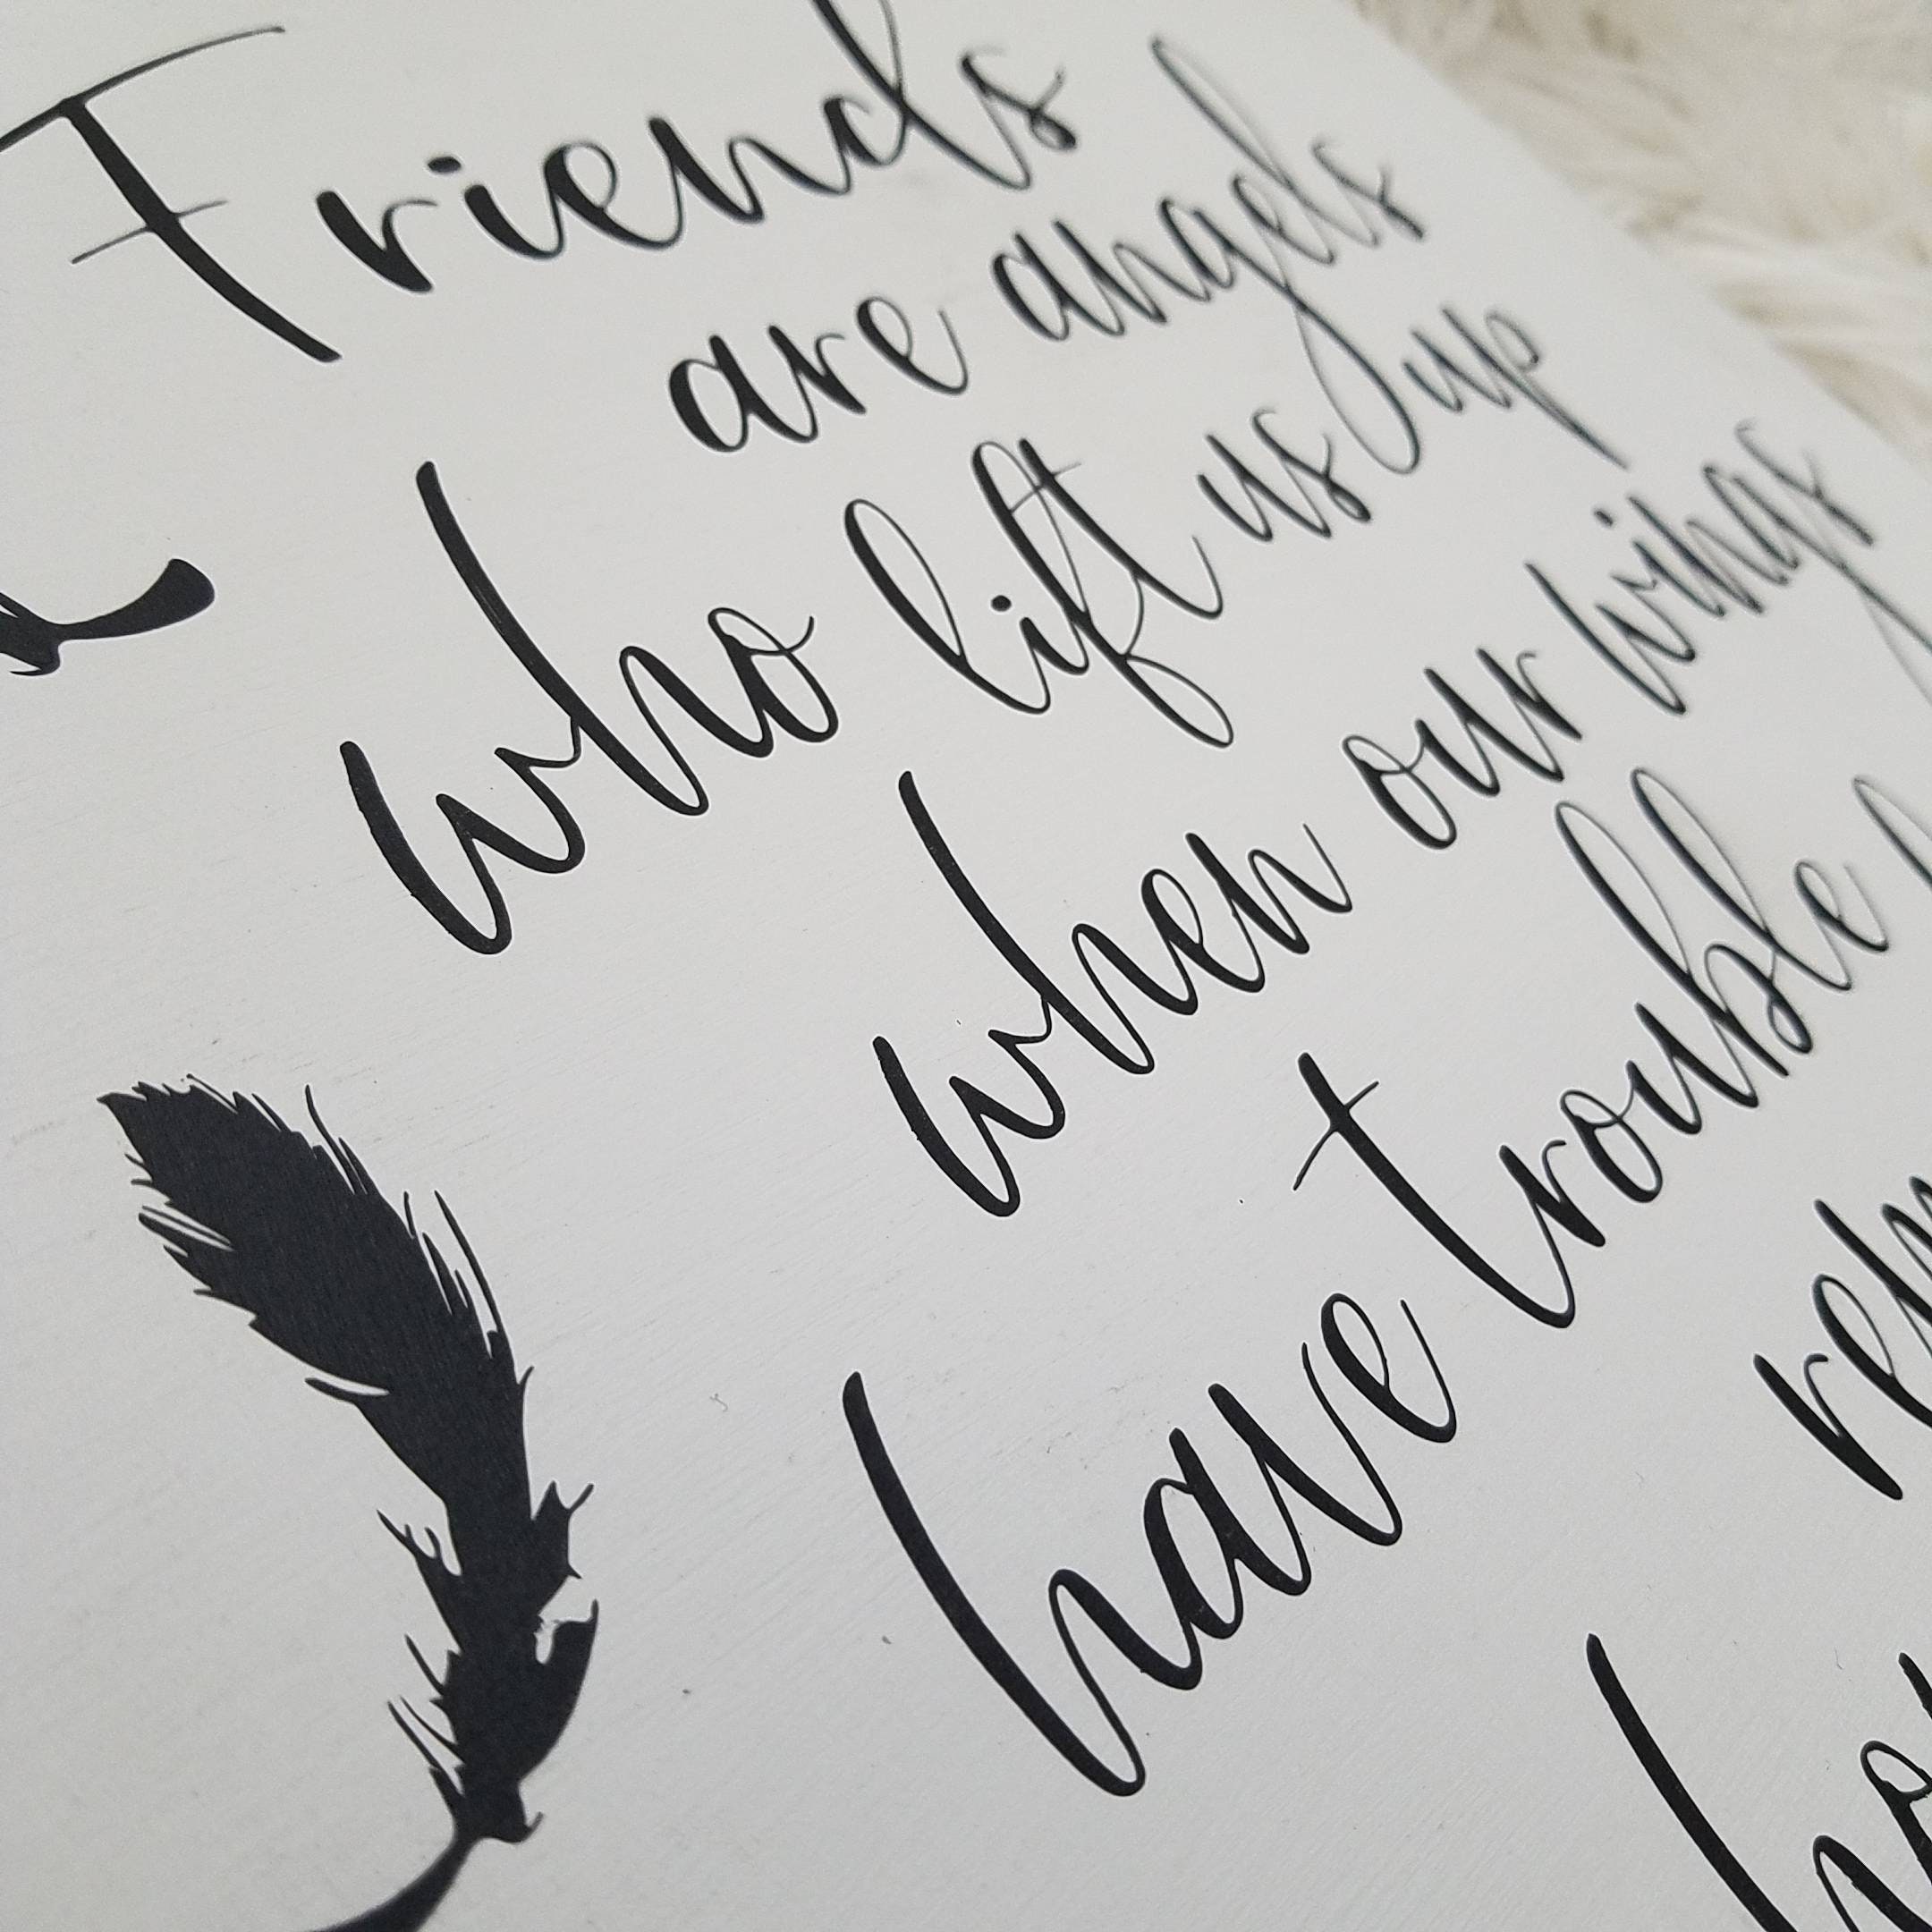 Friends
are angels
who lift us up
when our wings
have trouble